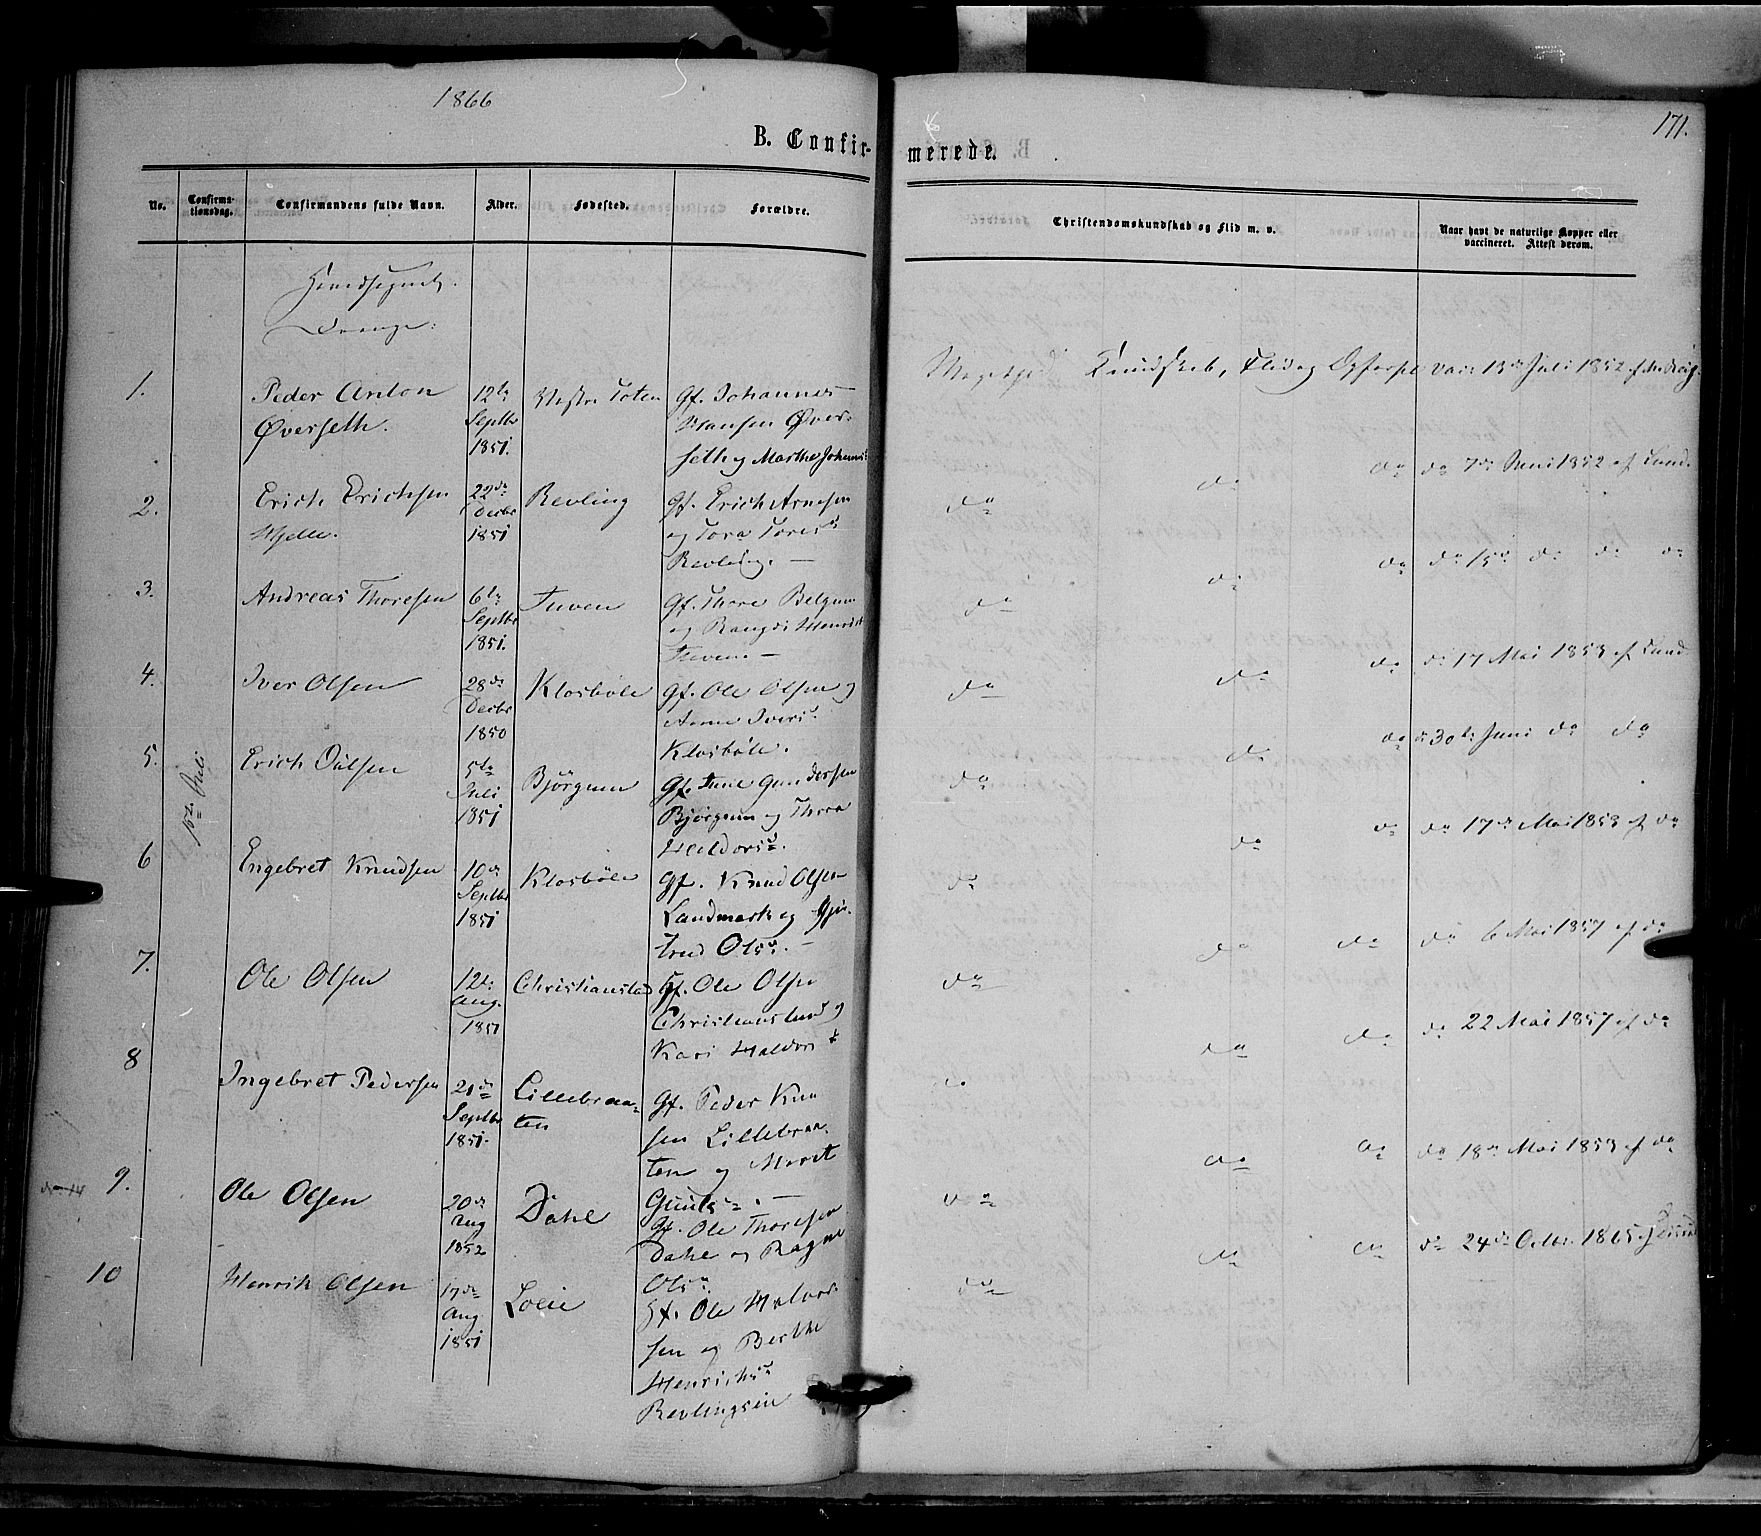 1866
171.
B. Confir-
merede.
No.
Confirma-
tionsdag.
Confirmandens fulde Navn.
Alder.
Fødested.
Forældre.
Christendomskundskab og Flid m. v.
Naar havt de naturlige Kopper eller
vaccineret. Attest derom.
Drenge:
15de Juli
1.
Peder Anton
Øverseth.
12te
Septbr
1851.
Vestre Toten
Gf. Johannes
Hansen Øver-
seth og Marthe Johans
Meget god Kundskab, Flid og Opførsel
vac: 13de Juli 1852 af
2.
Erich Erichsen
22de
Decbr
1851
Revling
Gf. Erich Arnesen
og Tora Tores
Revling. —
do do do
do 7de Juni 1852 af Lund
3.
Andreas Thoresen
6te
Septbr
1851.
Tuven
Gf. Thore Belgum
og
Tuven. —
do do do
do 15de do do do
4.
Iver Olsen
28de
Decbr
1850
Klosbøle
Gf. Ole Olsen og
Anne Ivers
Klosbøle.
do do do
do 17 Mai 1853 af Lund
5.
Erich
5te
Juli
1851
Bjørgum
Gf. Gundersen
Bjørgum og Thora
do do do
do 30te Juni do do
6
Engebret Knudsen
10de
Septbr
1851
Klosbøle
Gf. Knud Olsen
Landmark og Gjer-
trud Ols. —
do do do
do 17de Mai 1853 af do
7.
Ole Olsen
12te
Aug.
1851
Christianstad
Gf. Ole Olsen
og
Kari Haldors
do do do
do 6 Mai 1857 af do
8
Ingebret Pedersen
21de
Septbr
1851.
Lillebraa-
ten
Gf. Peder Knu
sen Lillebraa-
ten og Marit
do do do
do 22 Mai 1857 af do
9.
Ole Olsen
20de
Aug
1852
Dahl
Gf. Ole Thoresen
Dahl og Ragne
Ols.
do do do
do 18de Mai 1853 af do
10
Henrik Olsen
17de
Aug
1851
Gf. Ole Halvor-
sen og Berthe
Henrichs
do do do
do 24de Octbr. 1865 af